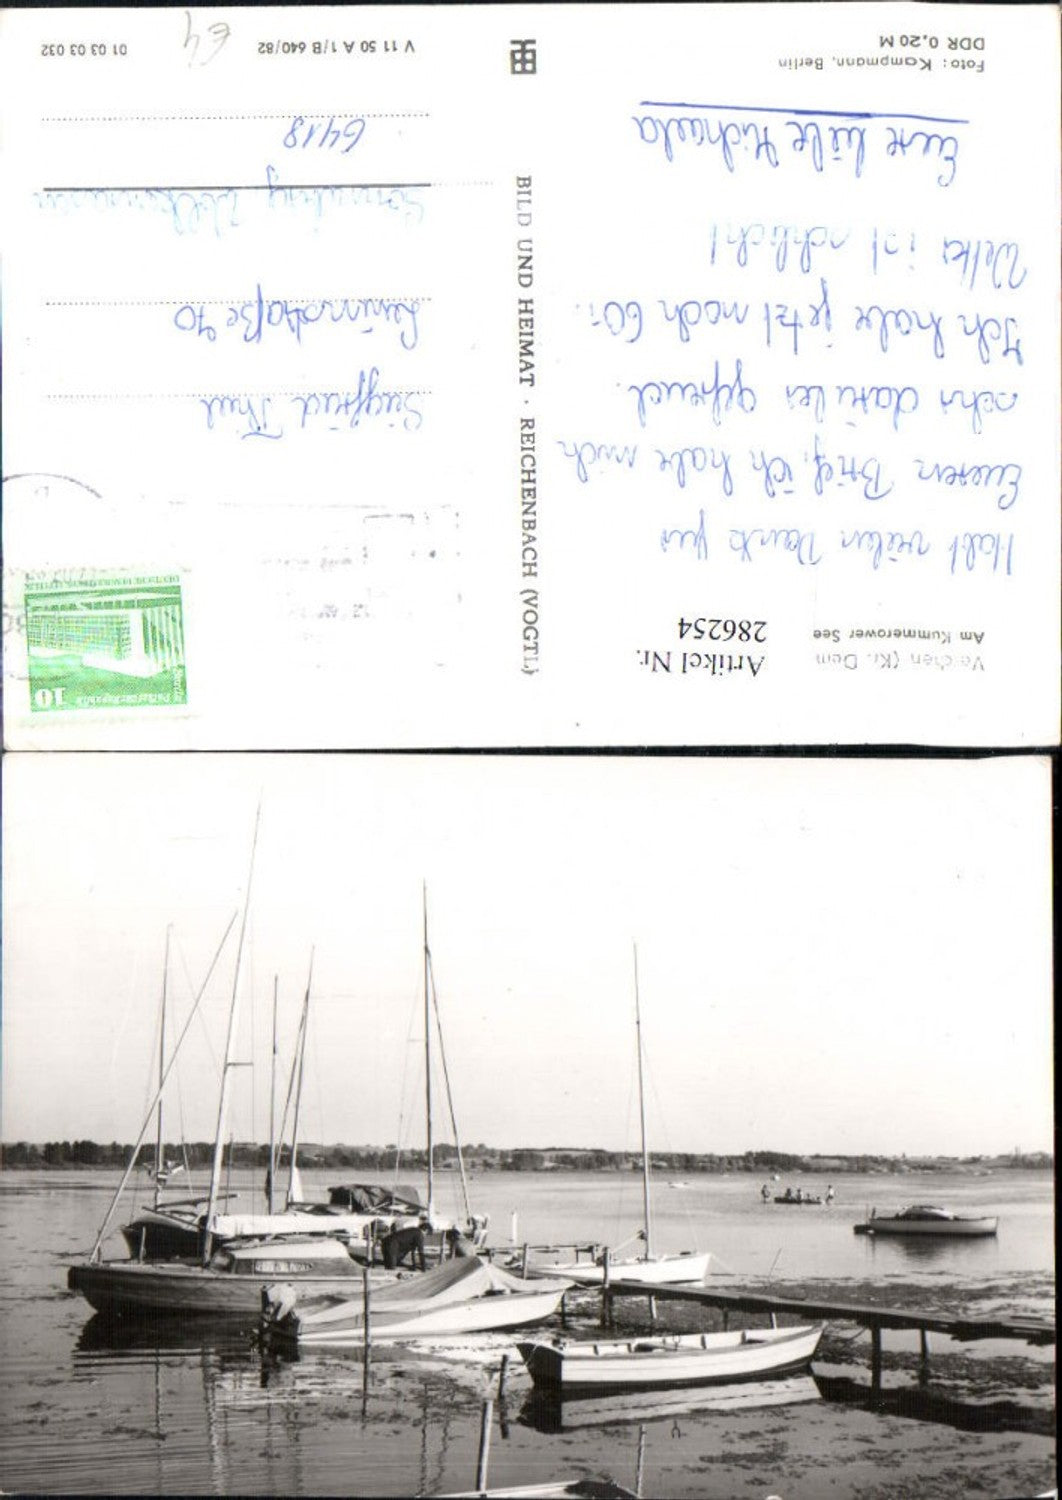 Verchen (Kr. Dem
Am Kummerower See
Artikel Nr.
286254
Habt vielen Dank für
Eueren Brief, ich habe mich
sehr darüber gefreud.
Ich habe jetzt noch 60
ist schlecht
Eure liebe Michaela
Foto: Kampmann, Berlin
DDR 0,20 M
BILD UND HEIMAT · REICHENBACH (VOGTL)
10
DEUTSCHE DEMOKRATISCHE REPUBLIK
Siegfried Thiel
Leninstraße 40
6418
V 11 50 A 1/B 640/82
01 03 03 032